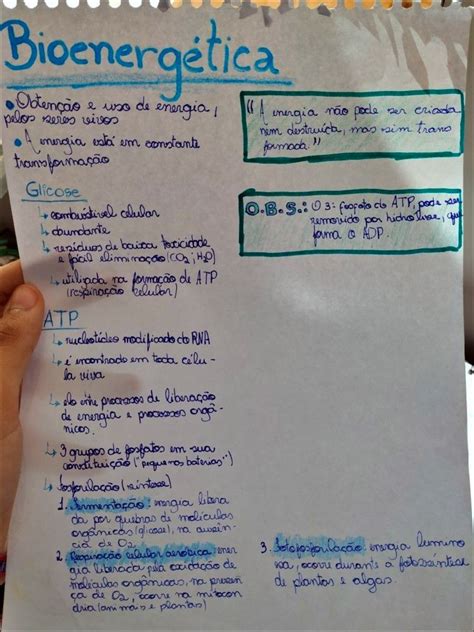 Bioenergética
• Obtenção e uso de energia,
pelos seres vivos
• A energia está em constante
transformação
"A energia não pode ser criada
nem destruída, mas sim trans
formada."
Glicose
↳ combustível celular
↳ abundante
↳ resíduos de baixa toxicidade
e fácil eliminação (CO2; H2O)
↳ utilizada na formação de ATP
(respiração celular)
O.B.S.: O 3º fosfato do ATP, pode ser
removido por hidrólise, que
forma o ADP.
ATP
↳ nucleotídeo modificado do RNA
↳ é encontrado em toda célu-
la viva
↳ elo entre processos de liberação
de energia e processos orgâ-
nicos.
↳ 3 grupos de fosfatos em sua
constituição ("pequenas baterias")
↳ fosforilação (síntese)
1. Fermentação: energia libera
da por quebras de moléculas
orgânicas (glicose), na ausên-
cia de O2.
2. Respiração celular aeróbica: ener
gia liberada pela oxidação de
moléculas orgânicas, na presen
ça de O2, ocorre na mitocon
dria (animais e plantas)
3. Fotofosforilação: energia lumino
sa, ocorre durante a fotossíntese
de plantas e algas.